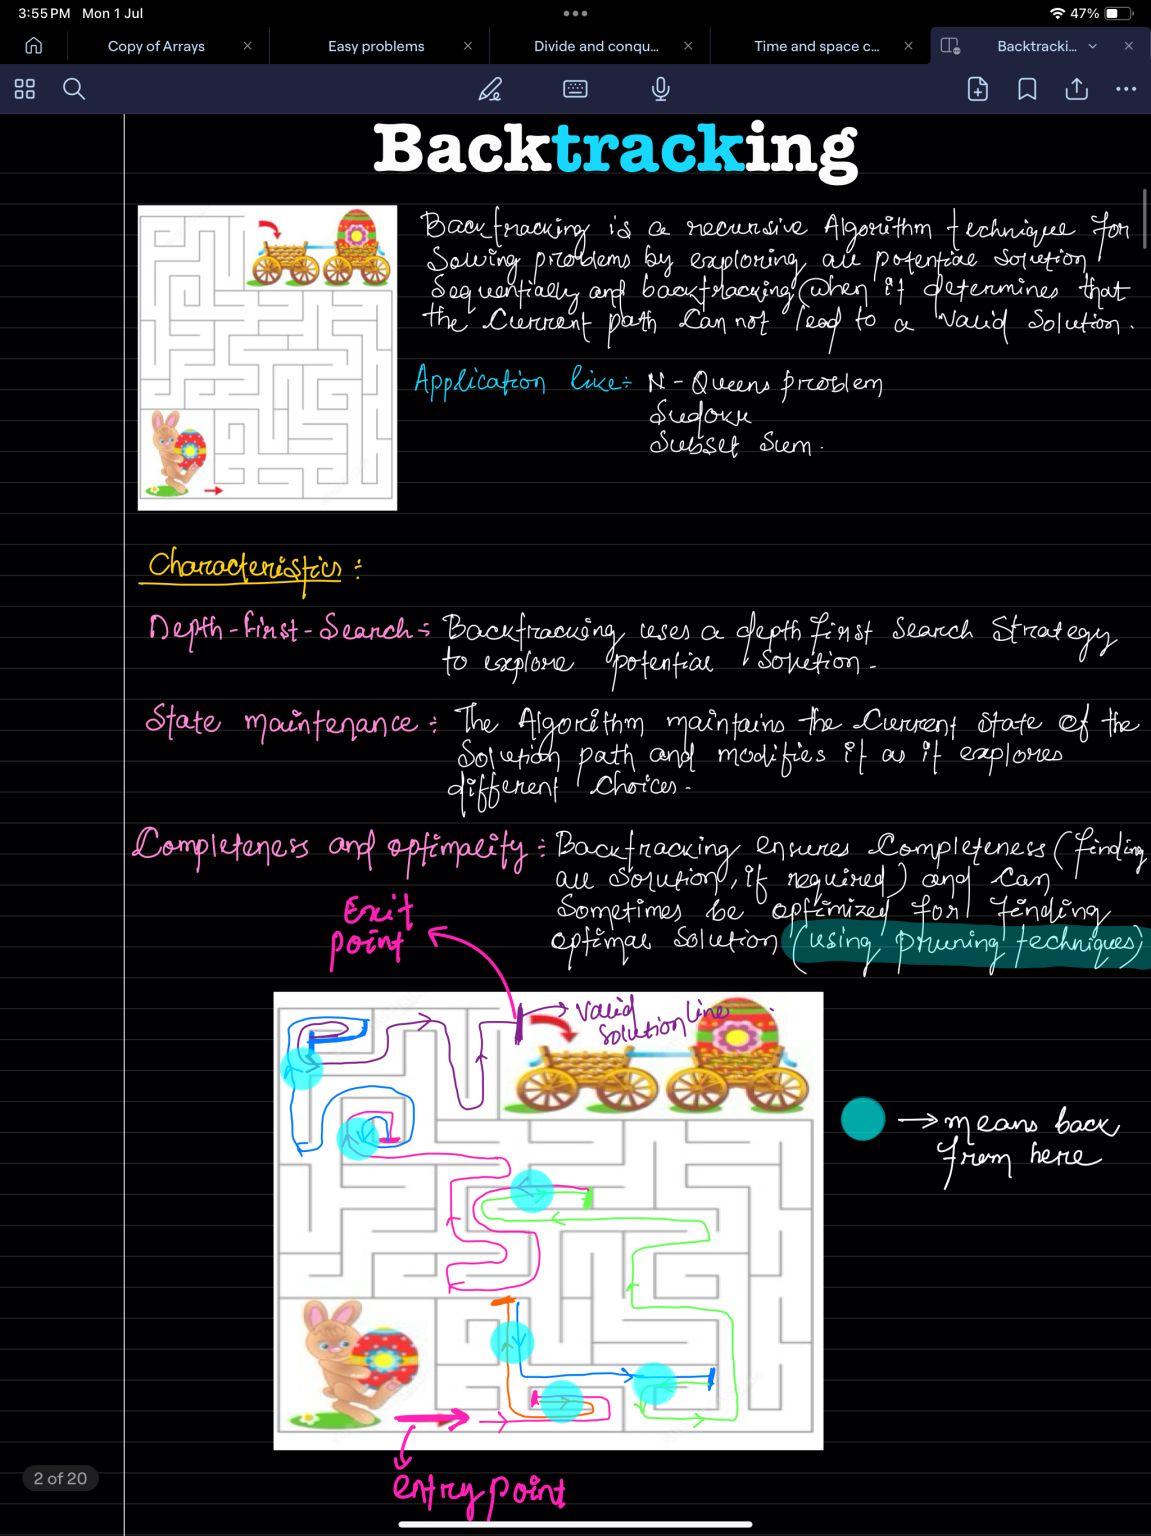 3:55 PM Mon 1 Jul
47%
Copy of Arrays
Easy problems
Divide and conqu...
Time and space c...
Backtracki...
Backtracking
Backtracking is a recursive Algorithm technique for
Solving problems by exploring all potential solution
Sequentially and backtracking (when it determines that
the Current path Can not lead to a Valid Solution.
Application like:- N-Queens problem
Sudoku
Subset Sum.
Characteristics :
Depth-First-Search:- Backtracking uses a depth first Search Strategy
to explore potential solution.
State maintenance :- The Algorithm maintains the Current state of the
Solution path and modifies it as it explores
different Choices.
Completeness and optimality :- Backtracking ensures Completeness (finding
all solution, if required) and Can
Sometimes be optimized for finding
optimal Solution (using pruning techniques)
Exit
point
Valid
solution line
→ means back
from here
entry point
2 of 20